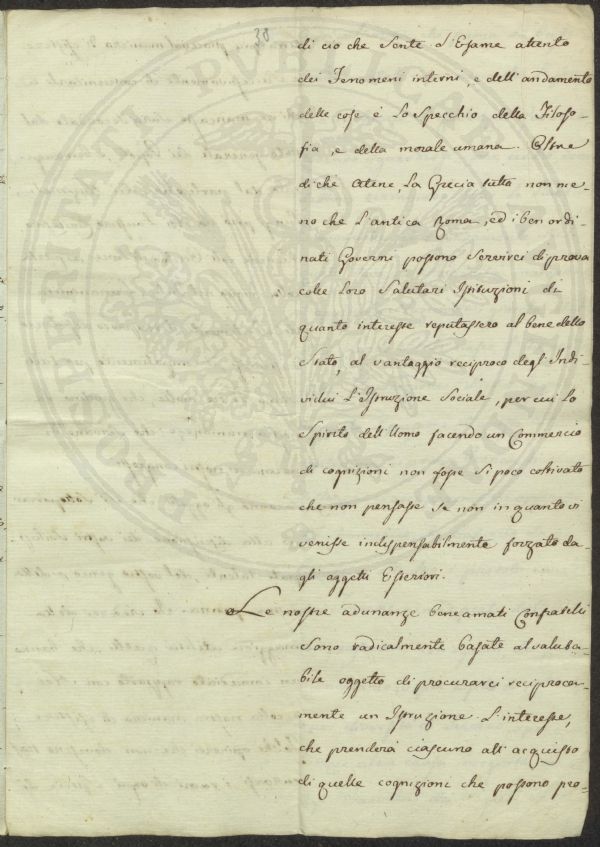 30
di cio che Sente. L'Esame attento
dei Fenomeni interni, e dell'andamento
delle cose è Lo Specchio della Filoso-
fia, e della morale umana. Oltre
di che Atene, La Grecia tutta non me-
no che L'antica Roma, ed i ben ordi-
nati Governi possono Servirci di prova
colle Loro Salutari Istituzioni di
quanto interesse reputassero al bene dello
Stato, al vantaggio reciproco degl'Indi-
vidui L'Istruzione Sociale, per cui Lo
Spirito dell'Uomo facendo un Commercio
di cognizioni non fosse Si poco coltivato
che non pensasse Se non in quanto vi
venisse indispensabilmente forzato da-
gli oggetti Esteriori.
Le nostre adunanze beneamati Confratelli
Sono radicalmente basate al valuta-
bile oggetto di procurarci reciproca-
mente un Istruzione. L'interesse,
che prenderà ciascuno all'acquisto
di quelle cognizioni che possono pro-